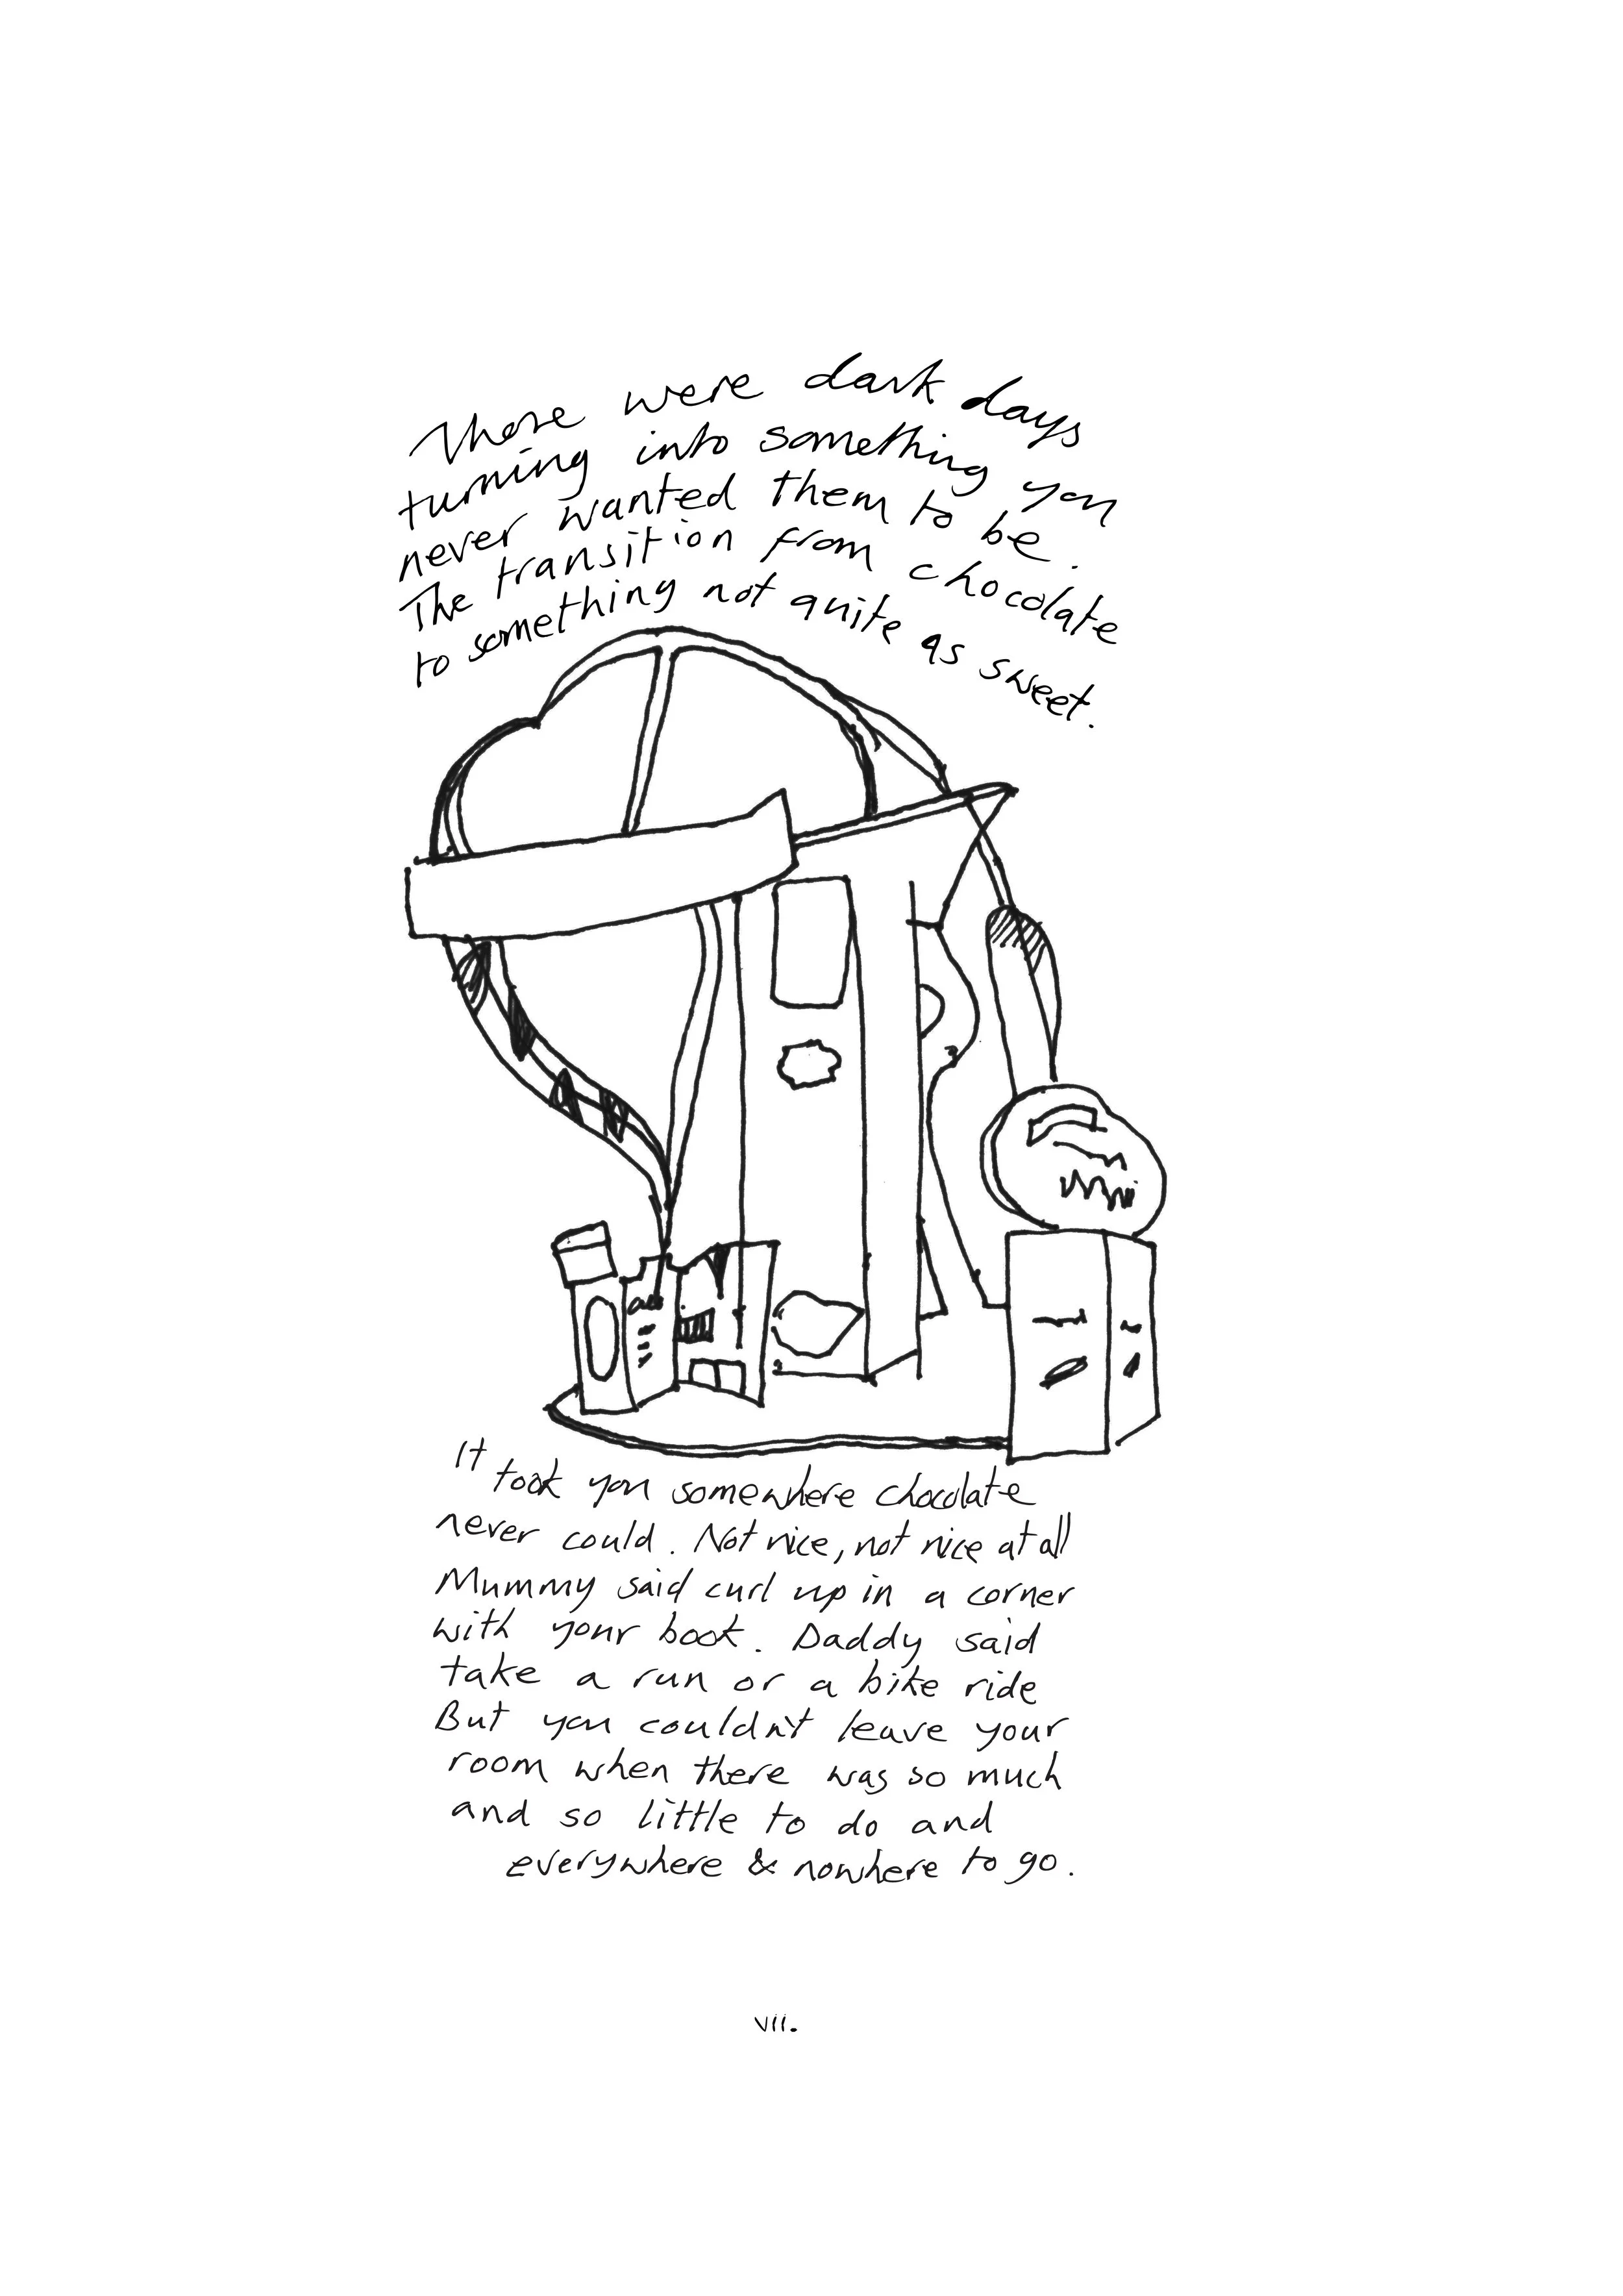 These were dark days
turning into something you
never wanted them to be.
The transition from chocolate
to something not quite as sweet.
It took you somewhere chocolate
never could. Not nice, not nice at all
Mummy said curl up in a corner
with your book. Daddy said
take a run or a bike ride
But you couldn't leave your
room when there was so much
and so little to do and
everywhere & nowhere to go.
vii.